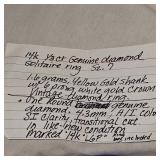 14k ½ct Genuine diamond
Solitaire ring Sz. 7
1.6 grams, Yellow Gold shank
w/ 6 prong white gold Crown
Vintage diamond ring.
One Round Genuine
diamond, 4.3mm, H/I color
SI Clarity transitional cut
like-new condition
marked 14K "LGP" box included